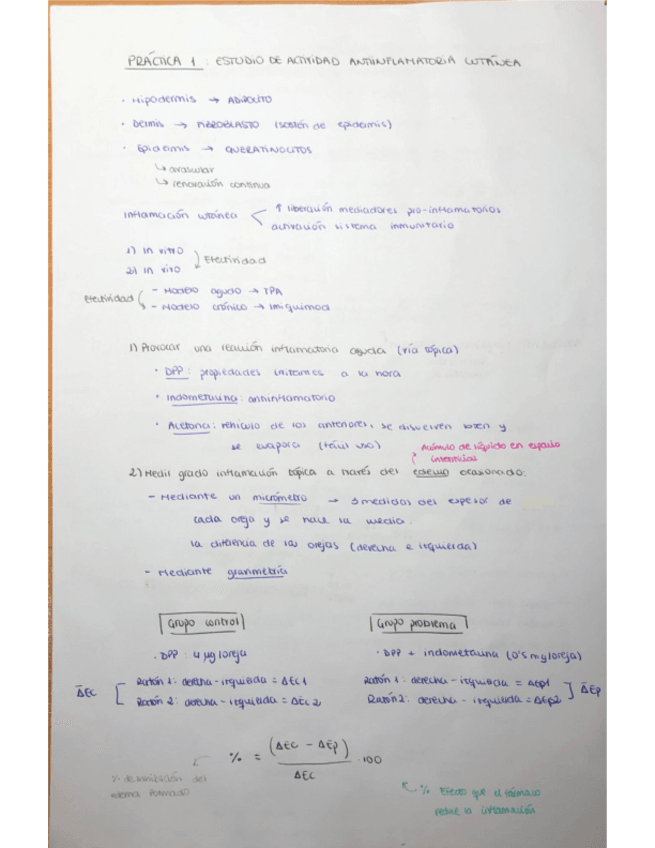 PRÁCTICA 1 : ESTUDIO DE ACTIVIDAD ANTIINFLAMATORIA CUTÁNEA
· Hipodermis → ADIPOCITO
· Dermis → FIBROBLASTO (sostén de epidermis)
· Epidermis → QUERATINOCITOS
↳ avascular
↳ renovación continua
Inflamación cutánea < ↑ liberación mediadores pro-inflamatorios
activación sistema inmunitario
1) In vitro
2) In vivo
) Efectividad
Efectividad
- Modelo agudo → TPA
- Modelo crónico → Imiquimod
1) Provocar una reacción inflamatoria aguda (vía tópica)
· DPP: propiedades irritantes a la hora
· Indometacina: antiinflamatorio
· Acetona: vehículo de los anteriores, se disuelven bien y
se evapora (fácil uso)
Acúmulo de líquido en espacio
intersticios
2) Medir grado inflamación tópica a través del edema ocasionado:
- Mediante un micrómetro → 3 medidas del espesor de
cada oreja y se hace la media.
la diferencia de las orejas (derecha e izquierda)
- Mediante gravimetría
Grupo control
· DPP : 4 µg/oreja
Ratón 1: derecha - izquierda = ΔEC1
Ratón 2: derecha - izquierda = ΔEC2
ΔEC
Grupo problema
· DPP + indometacina (0'5 mg/oreja)
Ratón 1: derecha - izquierda = ΔEp1
Ratón 2: derecha - izquierda = ΔEp2
ΔEp
% = (ΔEC - ΔEp) / ΔEC · 100
% de inhibición del
edema formado
% Efecto que el fármaco
reduce la inflamación